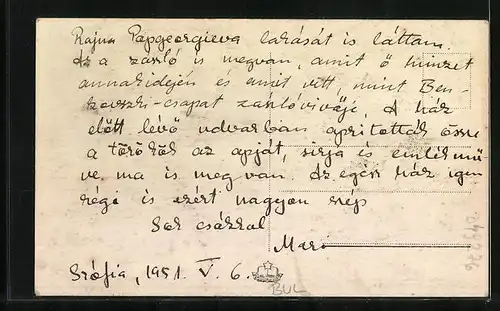 Rajna Papgeorgieva lakását is láttam.
Az a zászló is megvan, amit ő hímzet
annakidején és amit vitt, mint Ben-
kovszki-csapat zászlóvivője. A ház
előtt lévő udvarban aprították össze
a törökök az apját, sirja és emlékmű
ve ma is megvan. Az egész ház igen
régi is ezért nagyon szép
Sok csókkal
Mari
Szófia, 1951. V. 6.
BUL